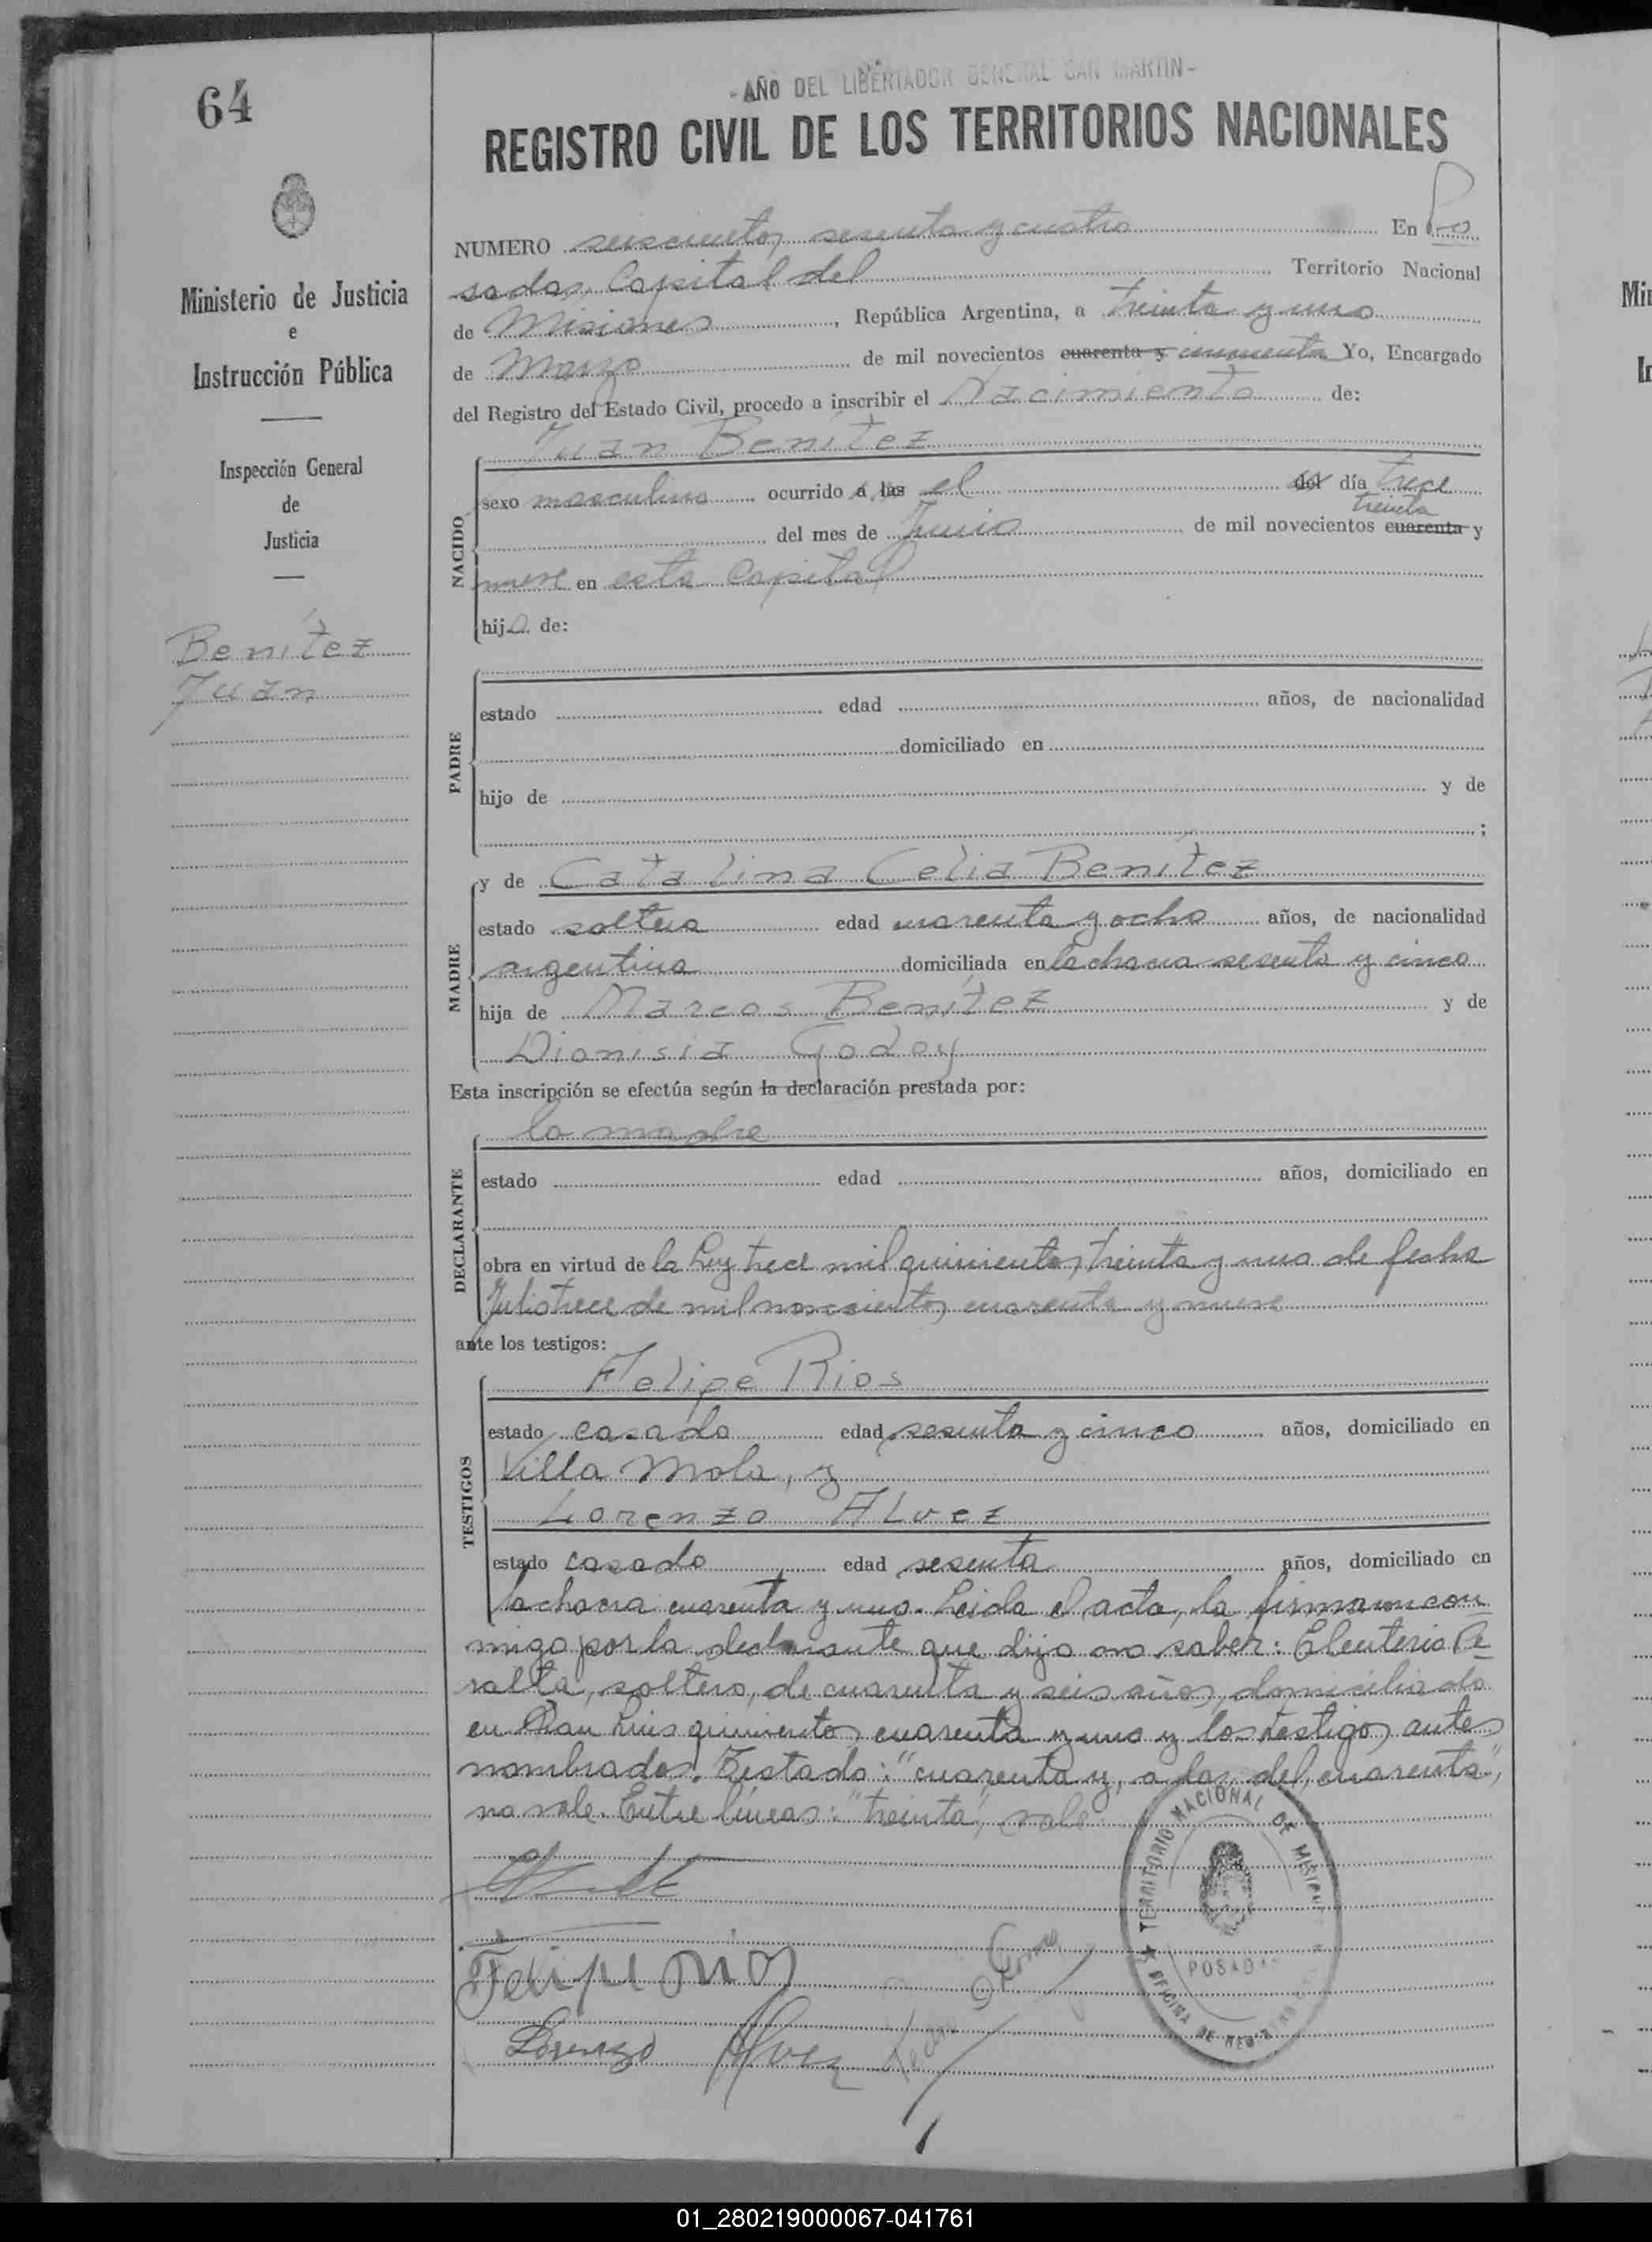 64
- AÑO DEL LIBERTADOR GENERAL SAN MARTIN -
REGISTRO CIVIL DE LOS TERRITORIOS NACIONALES
Ministerio de Justicia
e
Instrucción Pública
Inspección General
de
Justicia
Benítez
Juan
NUMERO seiscientos sesenta y cuatro En Po
sadas, Capital del Territorio Nacional
de Misiones, República Argentina, a treinta y uno
de Marzo de mil novecientos cuarenta y cincuenta Yo, Encargado
del Registro del Estado Civil, procedo a inscribir el Nacimiento de:
Juan Benítez
NACIDO
sexo masculino ocurrido a las el del día trece
treinta
del mes de Junio de mil novecientos cuarenta y
nueve en esta Capital
hijo de:
PADRE
estado edad años, de nacionalidad
domiciliado en
hijo de y de
;
MADRE
y de Catalina Celia Benítez
estado soltera edad cuarenta y ocho años, de nacionalidad
argentina domiciliada en la chacra sesenta y cinco
hija de Marcos Benítez y de
Dionisia Godoy
Esta inscripción se efectúa según la declaración prestada por:
DECLARANTE
la madre
estado edad años, domiciliado en
obra en virtud de la Ley trece mil quinientos treinta y uno de fecha
Julio trece de mil novecientos cuarenta y nueve
ante los testigos:
TESTIGOS
Felipe Rios
estado casado edad sesenta y cinco años, domiciliado en
Villa Mola, y
Lorenzo Alvez
estado casado edad sesenta años, domiciliado en
la chacra cuarenta y uno. Leida el acta, la firmaron con
migo por la declarante que dijo no saber: Eleuterio Pe
ralta, soltero, de cuarenta y seis años, domiciliado
en San Luis quinientos cuarenta y uno y los testigos antes
nombrados. Testado: "cuarenta y, a las, del, cuarenta",
no vale. Entre líneas: "treinta", vale
Felipe Rios
Lorenzo Alvez
TERRITORIO NACIONAL DE MISIONES
POSADAS
OFICINA DE REGISTRO
01_280219000067-041761